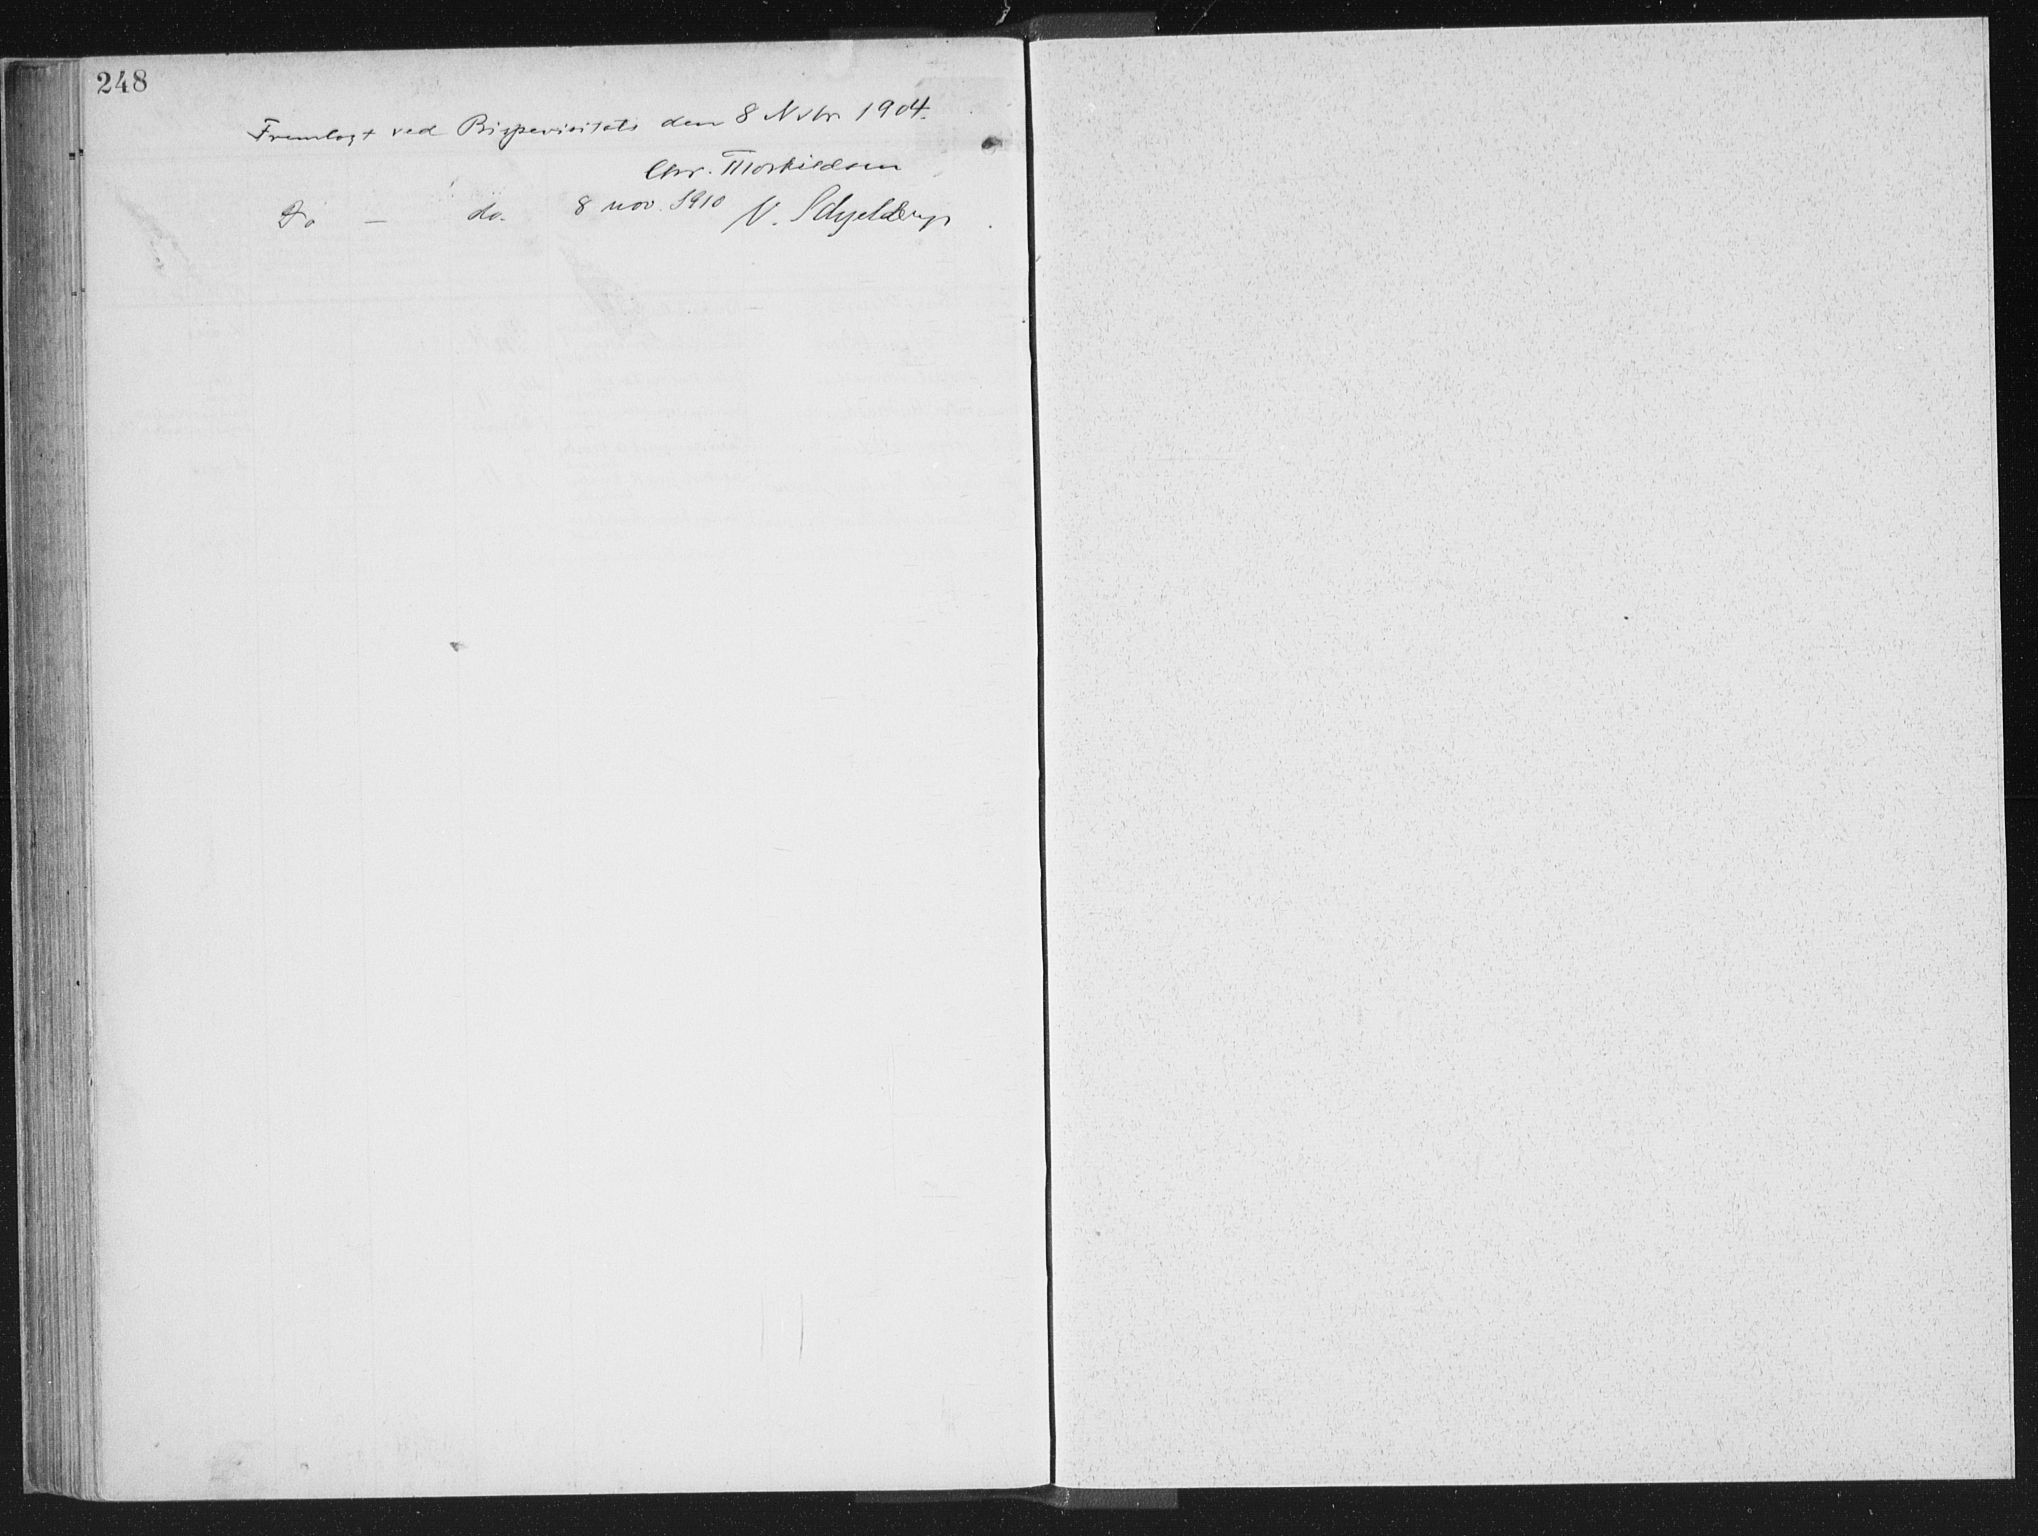 248
Fremlagt ved Bispevisitats den 8 Nvbr 1904.
Chr. Thorkildsen
Do — do. 8 nov. 1910 V. Schjelderup